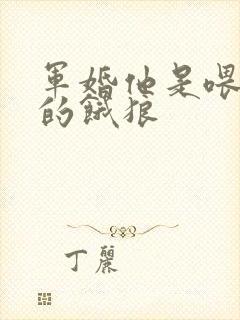 軍婚他是喂
的餓狼
丁麗